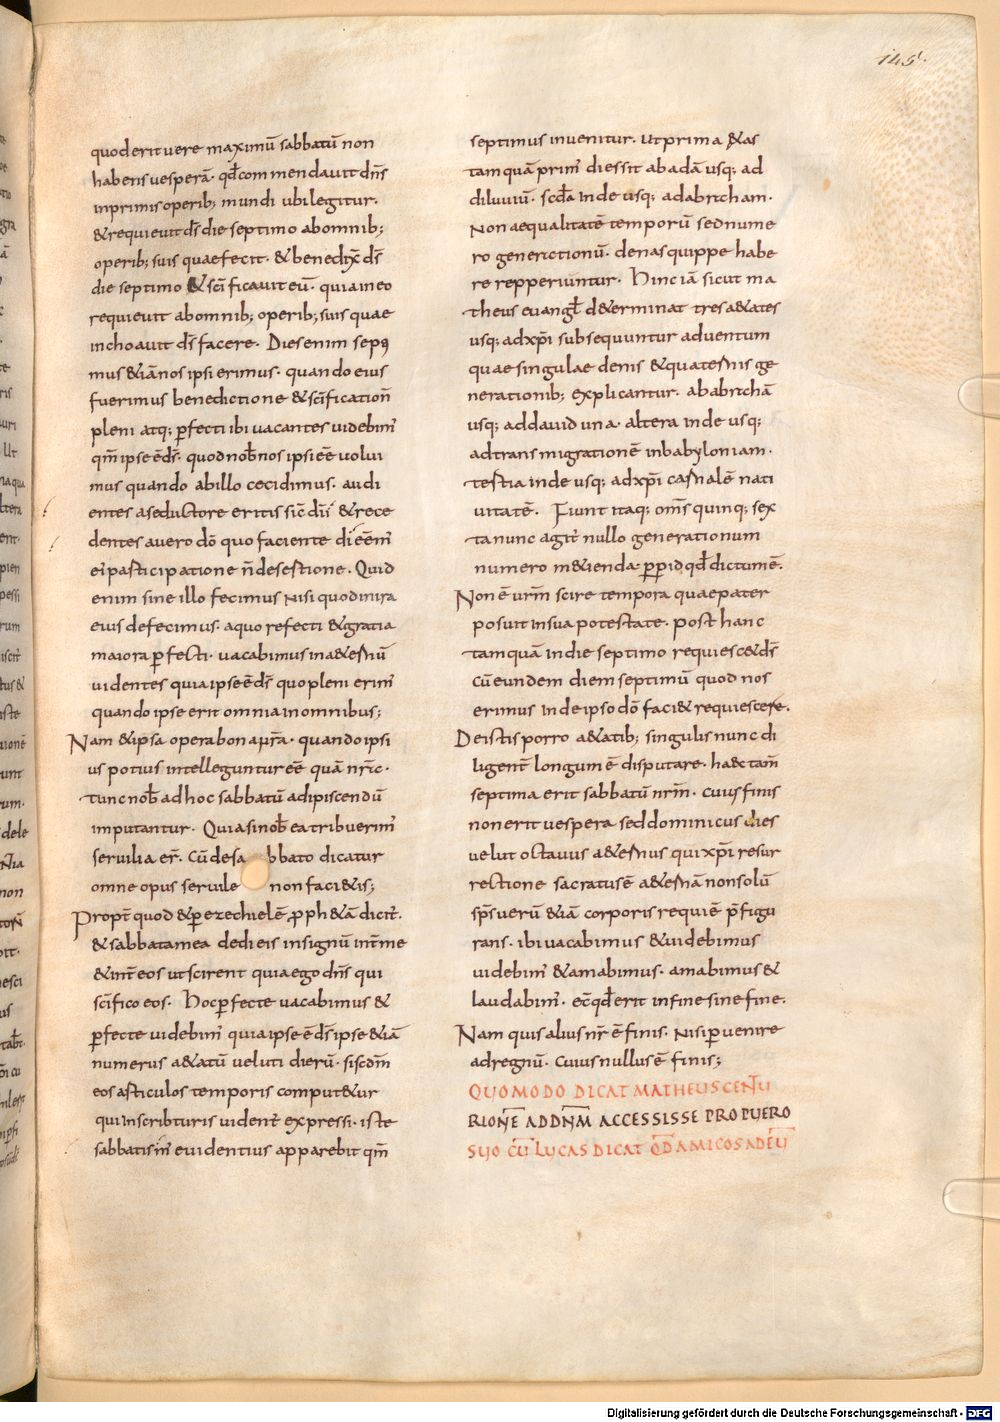 145.
quoderit uere maximū sabbatū non
habens uesperā· qd̄ commendauit dn̄s
inprimis operib; mundi ubi legitur·
&requieuit d̄s die septimo abomnib;
operib; suis quae fecit· & benedix̄ d̄s
die septimo & sc̄ificauit eū· quia in eo
requieuit abomnib; operib; suis quae
inchoauit d̄s facere· Dies enim septi
mus &iā nos ipsi erimus· quando eius
fuerimus benedictione & sc̄ification̄
pleni atq; p̄fecti ibi uacantes uidebim̄
qm̄ ipse ē d̄s· quod nob̄ nos ipsi eē uolui
mus quando abillo cecidimus· audi
entes aseductore eritis sic̄ dii & rece
dentes auero dō quo faciente dii eēm̄
ei participatione n̄ desertione· Quid
enim sine illo fecimus nisi quod in ira
eius defecimus· aquo refecti & gratia
maiora p̄fecti· uacabimus in a&ernū
uidentes quia ipse ē d̄s quo pleni erim̄
quando ipse erit omnia in omnibus;
Nam & ipsa opera bona nr̄a· quando ipsi
us potius intelleguntur eē quā nr̄a·
tunc nob̄ ad hoc sabbatū adipiscendū
imputantur· Quia si nob̄ ea tribuerim̄
seruilia er̄· cū de sabbato dicatur
omne opus seruile non faci&is;
Propt̄ quod & p̄ ezechielē p̄ph&ā dicit̄·
& sabbata mea dedi eis in signū int̄ me
& int̄ eos ut scirent quia ego dn̄s qui
sc̄ifico eos· Hoc p̄fecte uacabimus &
p̄fecte uidebim̄ quia ipse ē d̄s ipse &iā
numerus a&atū ueluti dierū· si scdm̄
eos articulos temporis comput&ur
qui in scribturis uident̄ expressi· iste
sabbatism̄ euidentius apparebit qm̄
septimus inuenitur· ut prima &as
tamquā prim̄ dies sit abadā usq; ad
diluuiū· scd̄a inde usq; ad abraham·
Non aequalitatē temporū sed nume
ro generationū· denas quippe habe
re repperiuntur· Hinc iā sicut ma
theus euangl̄ d&erminat tres a&ates
usq; ad xp̄i subsequuntur aduentum
quae singulae denis & quaternis ge
nerationib; explicantur· ababrahā
usq; ad dauid una· altera inde usq;
ad transmigrationē in babyloniam·
tertia inde usq; ad xp̄i carnalē nati
uitatē· Fiunt itaq; om̄s quinq; sex
ta nunc agit̄ nullo generationum
numero m&ienda· p̄p̄ id qd̄ dictum ē·
Non ē ur̄m scire tempora quae pater
posuit in sua potestate· post hanc
tamquā in die septimo requiesc& d̄s
cū eundem diem septimū quod nos
erimus in de ipso dō faci& requiescere·
De istis porro a&atib; singulis nunc di
ligent̄ longum ē disputare· haec tam̄
septima erit sabbatū nr̄m· cuius finis
non erit uespera sed dominicus dies
uelut octauus a&ernus qui xp̄i resur
rectione sacratus ē a&ernā non solū
sp̄s uerū &iā corporis requiē p̄figu
rans· ibi uacabimus & uidebimus
uidebim̄ & amabimus· amabimus &
laudabim̄· ecc̄ qd̄ erit in fine sine fine·
Nam quis alius nr̄ ē finis· nisi p̄uenire
ad regnū· cuius nullus ē finis;
QUOMODO DICAT MATHEUS CENTU
RIONĒ AD DN̄M ACCESSISSE PRO PUERO
SUO CŪ LUCAS DICAT QD̄ AMICOS AD EŪ
Digitalisierung gefördert durch die Deutsche Forschungsgemeinschaft - DFG